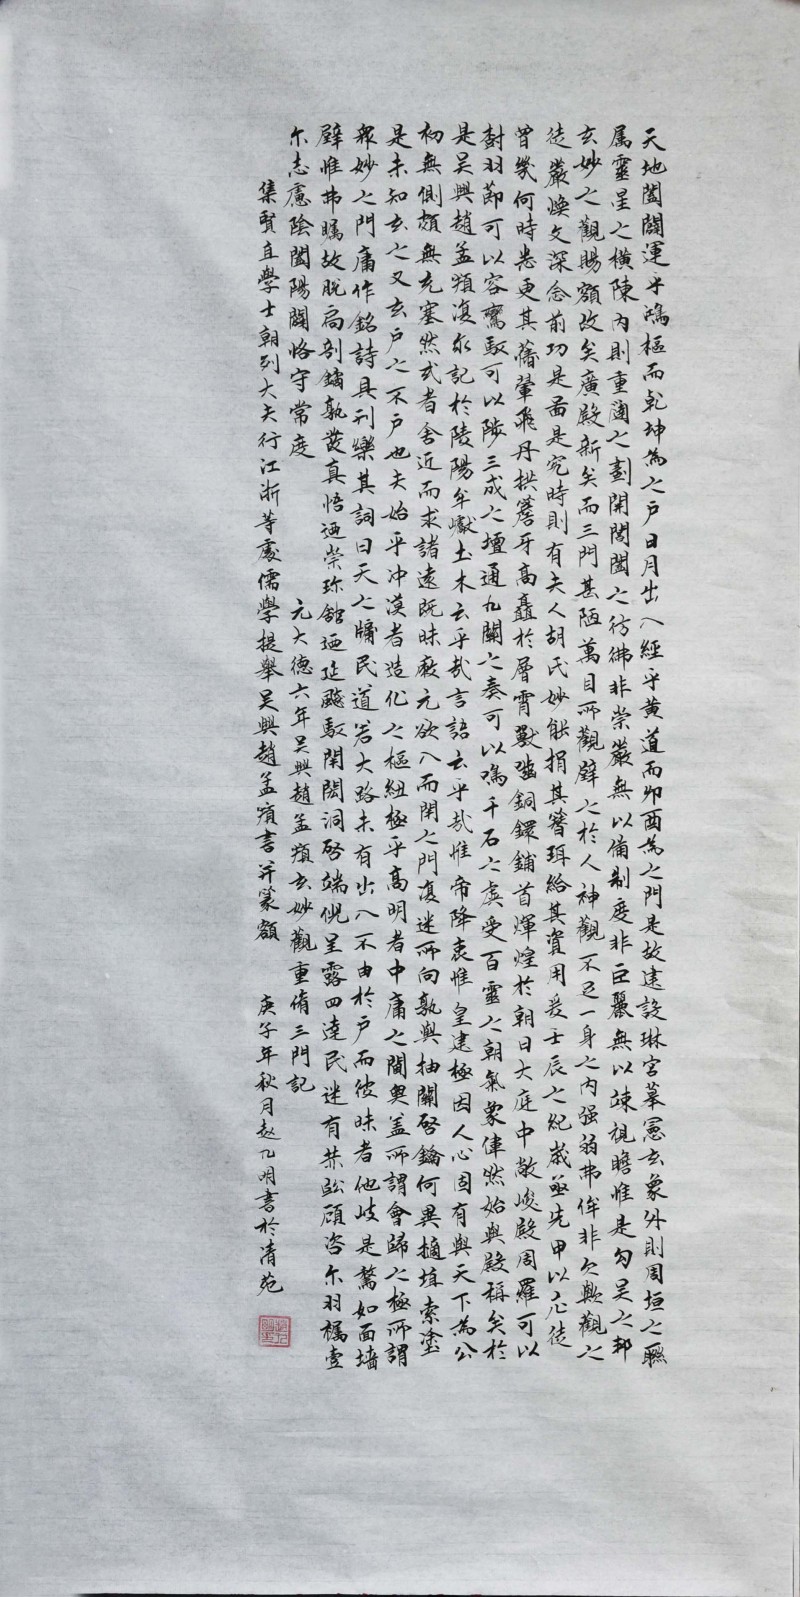 天地闔闢運乎鴻樞而乾坤為之戶日月出入經乎黄道而卯酉為之門是故建設琳宮摹憲玄象外則周垣之聯
属靈星之横陳內則重闥之劃閞閶闔之彷彿非崇嚴無以備制度非巨麗無以竦視瞻惟是勾吴之邦
玄妙之觀賜額改矣廣殿新矣而三門甚陋萬目所觀辟之於人神觀不足一身之內强弱弗侔非欠歟觀之
徒嚴煥文深念前功是啚是究時則有夫人胡氏妙能捐其簪珥給其資用爰壬辰之紀歲亟先甲以庀徒
曾幾何時悉更其舊翬飛丹拱簷牙高矗於層霄獸嚙銅鐶鋪首煇煌於朝日大庭中敞峻殿周羅可以
樹羽莭可以容鸞馭可以陟三成之壇通九關之奏可以鳴千石之虡受百靈之朝氣象偉然始與殿稱矣於
是吴興趙孟頫復求記於陵陽牟巘土木云乎哉言語云乎哉惟帝降衷惟皇建極因人心固有與天下為公
初無側頗無充塞然或者舍近而求諸遠旣昧厥元欲入而閉之門復迷所向孰與抽關啓鑰何異擿埴索塗
是未知玄之又玄戶之不戶也夫始乎冲漠者造化之樞紐極乎高明者中庸之閫奥盖所謂會歸之極所謂
衆妙之門庸作銘詩具刊樂其詞曰天之牖民道若大路未有出入不由於戶而彼昧者他岐是騖如面墻
壁惟弗矚故脫扃剖鐍孰發真悟迺崇珎舘迺延飈馭閞閎洞啓端倪呈露四達民迷有赫臨顧咨尓羽襦壹
尓志慮陰闔陽闢恪守常度 元大德六年吴興趙孟頫玄妙觀重脩三門記
集賢直學士朝列大夫行江浙等處儒學提舉吴興趙孟頫書并篆額 庚子年秋月赵乃明書於清苑